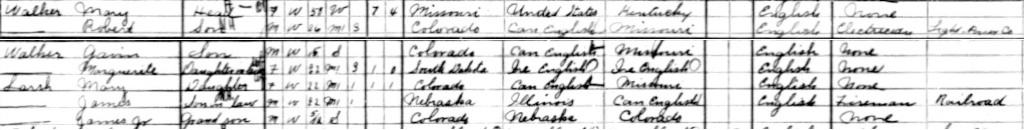 Walker Mary Head F W 58 W 7 4 Missouri United States Kentucky English None
Robert Son M W 26 M1 3 Colorado Can English Missouri English Electrician Light & Power Co
Walker Gavin Son M W 15 S Colorado Can English Missouri English None
Marguerite Daughter in law F W 22 M1 3 1 0 South Dakota Ire English Ire English English None
Larsh Mary Daughter F W 22 M1 1 1 Colorado Can English Missouri English None
James Son in law M W 22 M1 1 Nebraska Illinois Can English English Fireman Railroad
James Jr Grand son M W S Colorado Nebraska Colorado None